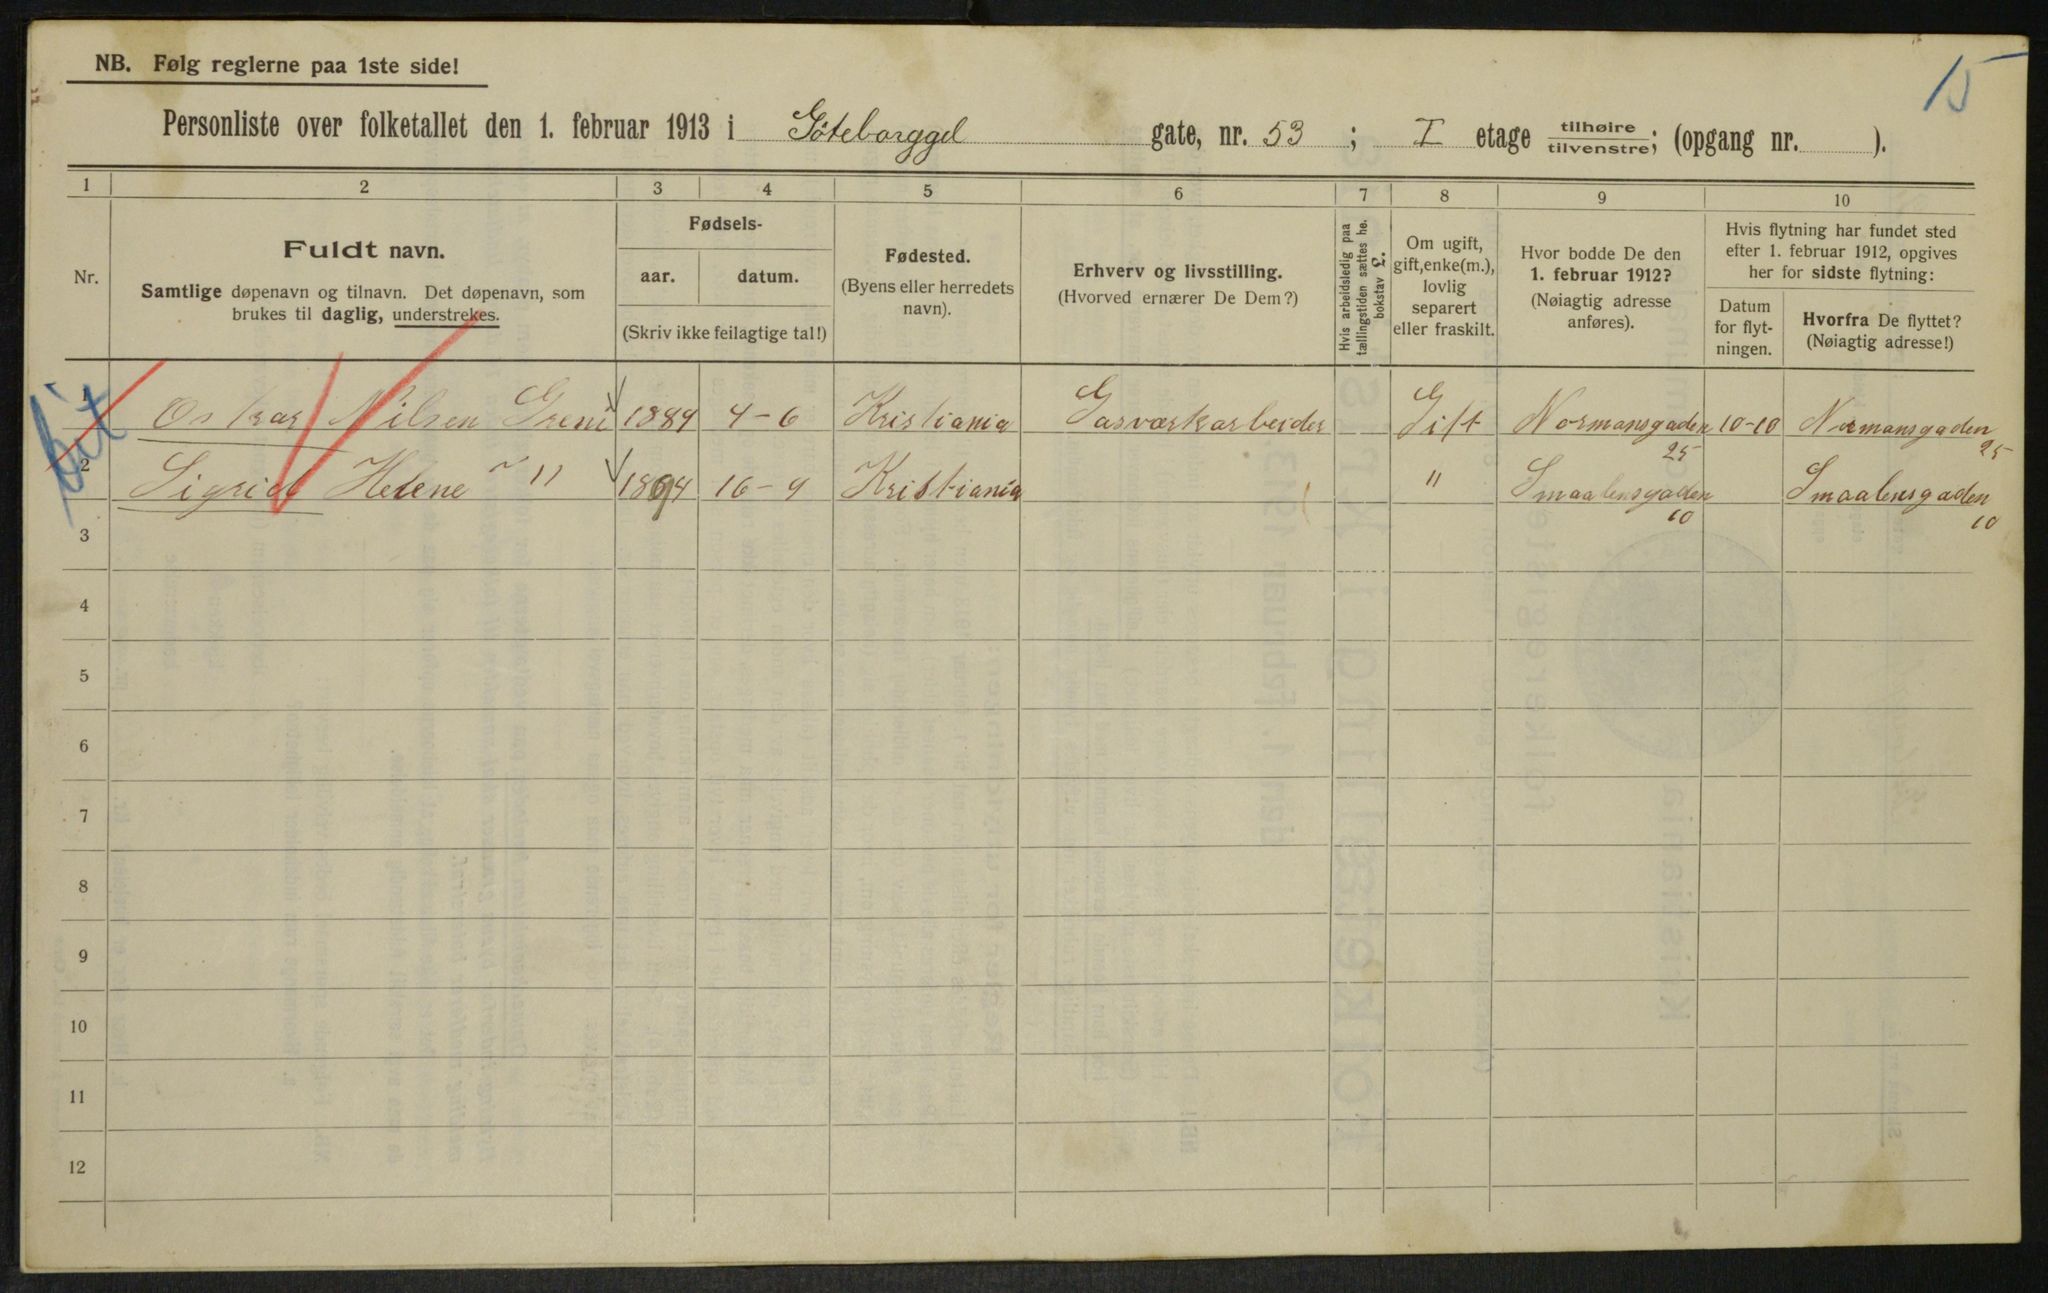 NB. Følg reglerne paa 1ste side!
15
Personliste over folketallet den 1. februar 1913 i Göteborggd gate, nr. 53 ; I etage tilhøire / tilvenstre; (opgang nr. ).
1 2 3 4 5 6 7 8 9 10
Nr.
Fuldt navn.
Samtlige døpenavn og tilnavn. Det døpenavn, som
brukes til daglig, understrekes.
Fødsels-
aar. datum.
(Skriv ikke feilagtige tal!)
Fødested.
(Byens eller herredets
navn).
Erhverv og livsstilling.
(Hvorved ernærer De Dem?)
Hvis arbeidsledig paa
tællingstiden sættes he.
bokstav L.
Om ugift,
gift, enke(m.),
lovlig
separert
eller fraskilt.
Hvor bodde De den
1. februar 1912?
(Nøiagtig adresse
anføres).
Hvis flytning har fundet sted
efter 1. februar 1912, opgives
her for sidste flytning:
Datum
for flyt-
ningen.
Hvorfra De flyttet?
(Nøiagtig adresse!)
1 Oskar Nilsen Greni 1889 4-6 Kristiania Gasværkarbeider Gift Normansgaden 25 10-10 Normansgaden 25
2 Sigrid Helene " 1894 16-9 Kristiania " Smaalensgaden 10 Smaalensgaden 10
3
4
5
6
7
8
9
10
11
12